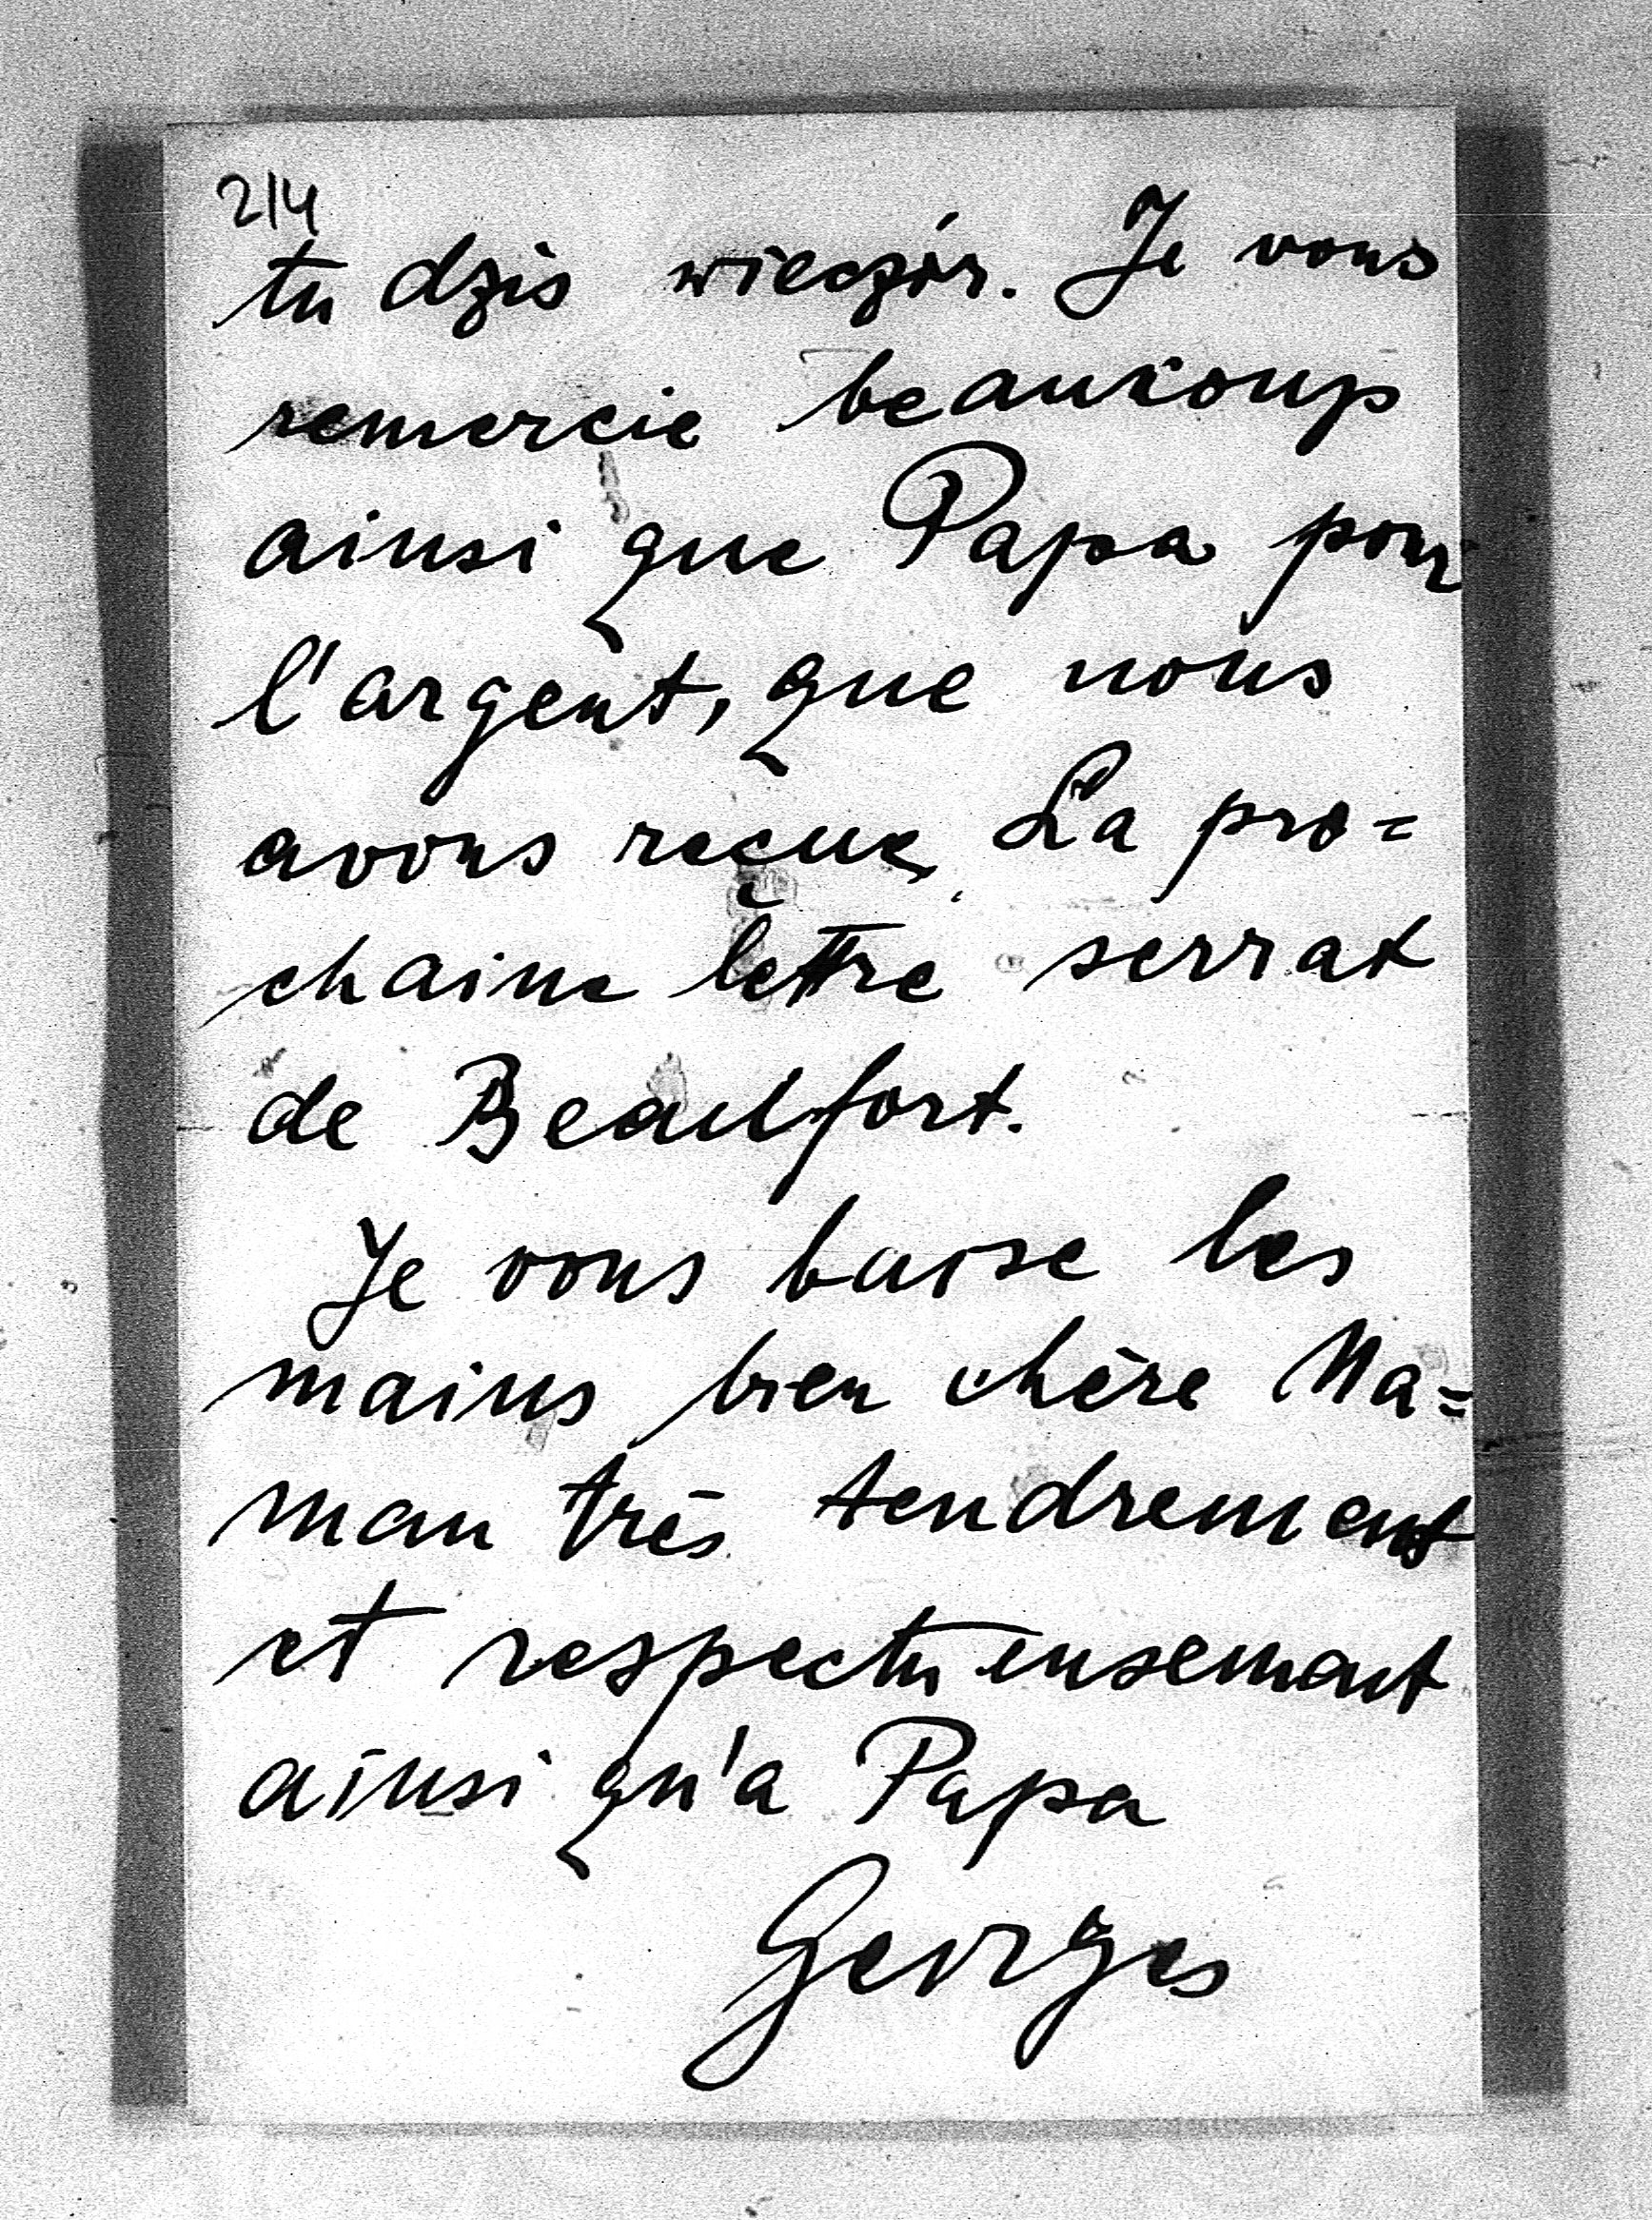 214
tu dziś wieczór. Je vous
remercie beaucoup
ainsi que Papa pour
l'argent, que nous
avons reçue. La pro=
chaine lettre serrat
de Beaulfort.
Je vous baise les
mains bien chère Ma=
man très tendrement
et respectueusemant
ainsi qu'a Papa
Georges